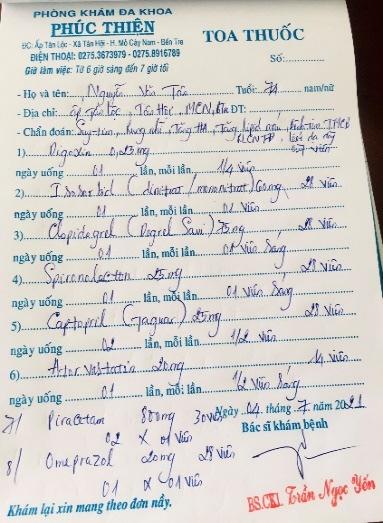 PHÒNG KHÁM ĐA KHOA
PHÚC THIỆN
TOA THUỐC
ĐC: Ấp Tân Lộc - Xã Tân Hội - H. Mỏ Cày Nam - Bến Tre
ĐIỆN THOẠI: 0275.3673979 - 0275.8916789
Giờ làm việc: Từ 6 giờ sáng đến 7 giờ tối
Số:
- Họ và tên: Nguyễn Văn Tấn Tuổi: 74 nam/nữ
- Địa chỉ: ấp Tân Lộc, Tân Hội, MCN, ĐT:
- Chẩn đoán: Suy tim, Tăng HA, Tăng lipid máu, TMCB
1) Digoxin 0,25mg 07 viên
ngày uống 01 lần, mỗi lần 1/4 viên
2) Isosorbid (dinitrat/mononitrat) 60mg 28 viên
ngày uống 01 lần, mỗi lần 01 viên
3) Clopidogrel (Dogrel Savi) 75mg 28 viên
ngày uống 01 lần, mỗi lần 01 viên sáng
4) Spironolacton 25mg 28 viên
ngày uống 01 lần, mỗi lần 01 viên sáng
5) Captopril (Taguar) 25mg 28 viên
ngày uống 02 lần, mỗi lần 1/2 viên
6) Atorvastatin 20mg 14 viên
ngày uống 01 lần, mỗi lần 1/2 viên sáng
7/ Piracetam 800mg 30 viên
Ngày 04 tháng 7 năm 2021
02 x 01 viên
Bác sĩ khám bệnh
8/ Omeprazol 20mg 28 viên
01 x 01 viên
BS.CKI. Trần Ngọc Yến
Khám lại xin mang theo đơn nầy.